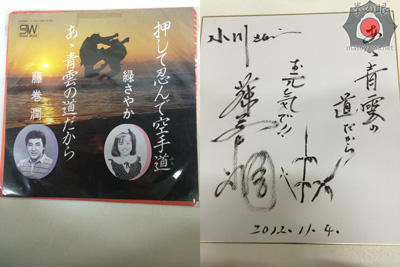 押して忍んで空手道
緑さやか
あゝ青雲の道だから
藤巻潤
あゝ青雲の
道だから!
小川さん江
お元気で!!
藤巻潤
2012.11.4.